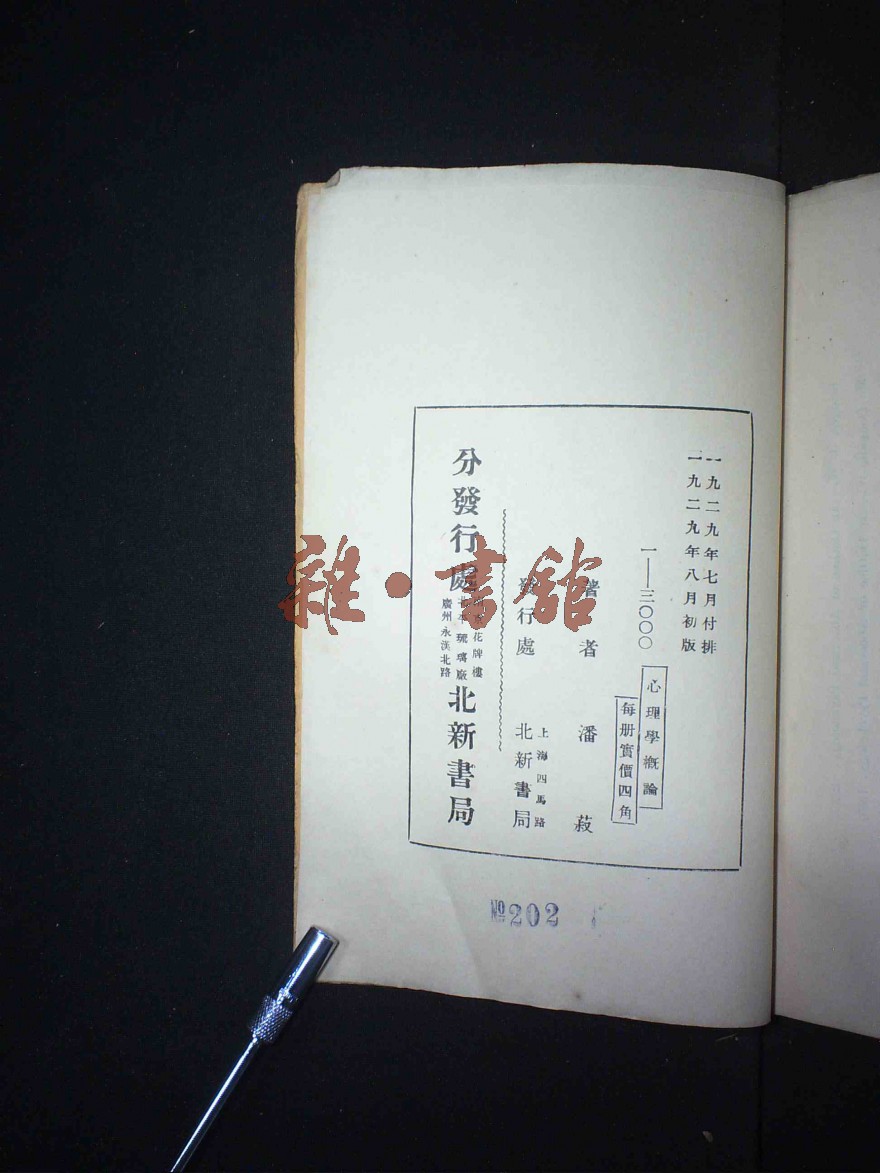 一九二九年七月付排
一九二九年八月初版
一——三〇〇〇
心理學概論
每册實價四角
著者 潘菽
發行處 上海四馬路 北新書局
分發行處
花牌樓
北平琉璃廠
廣州永漢北路
北新書局
№202
雜·書館